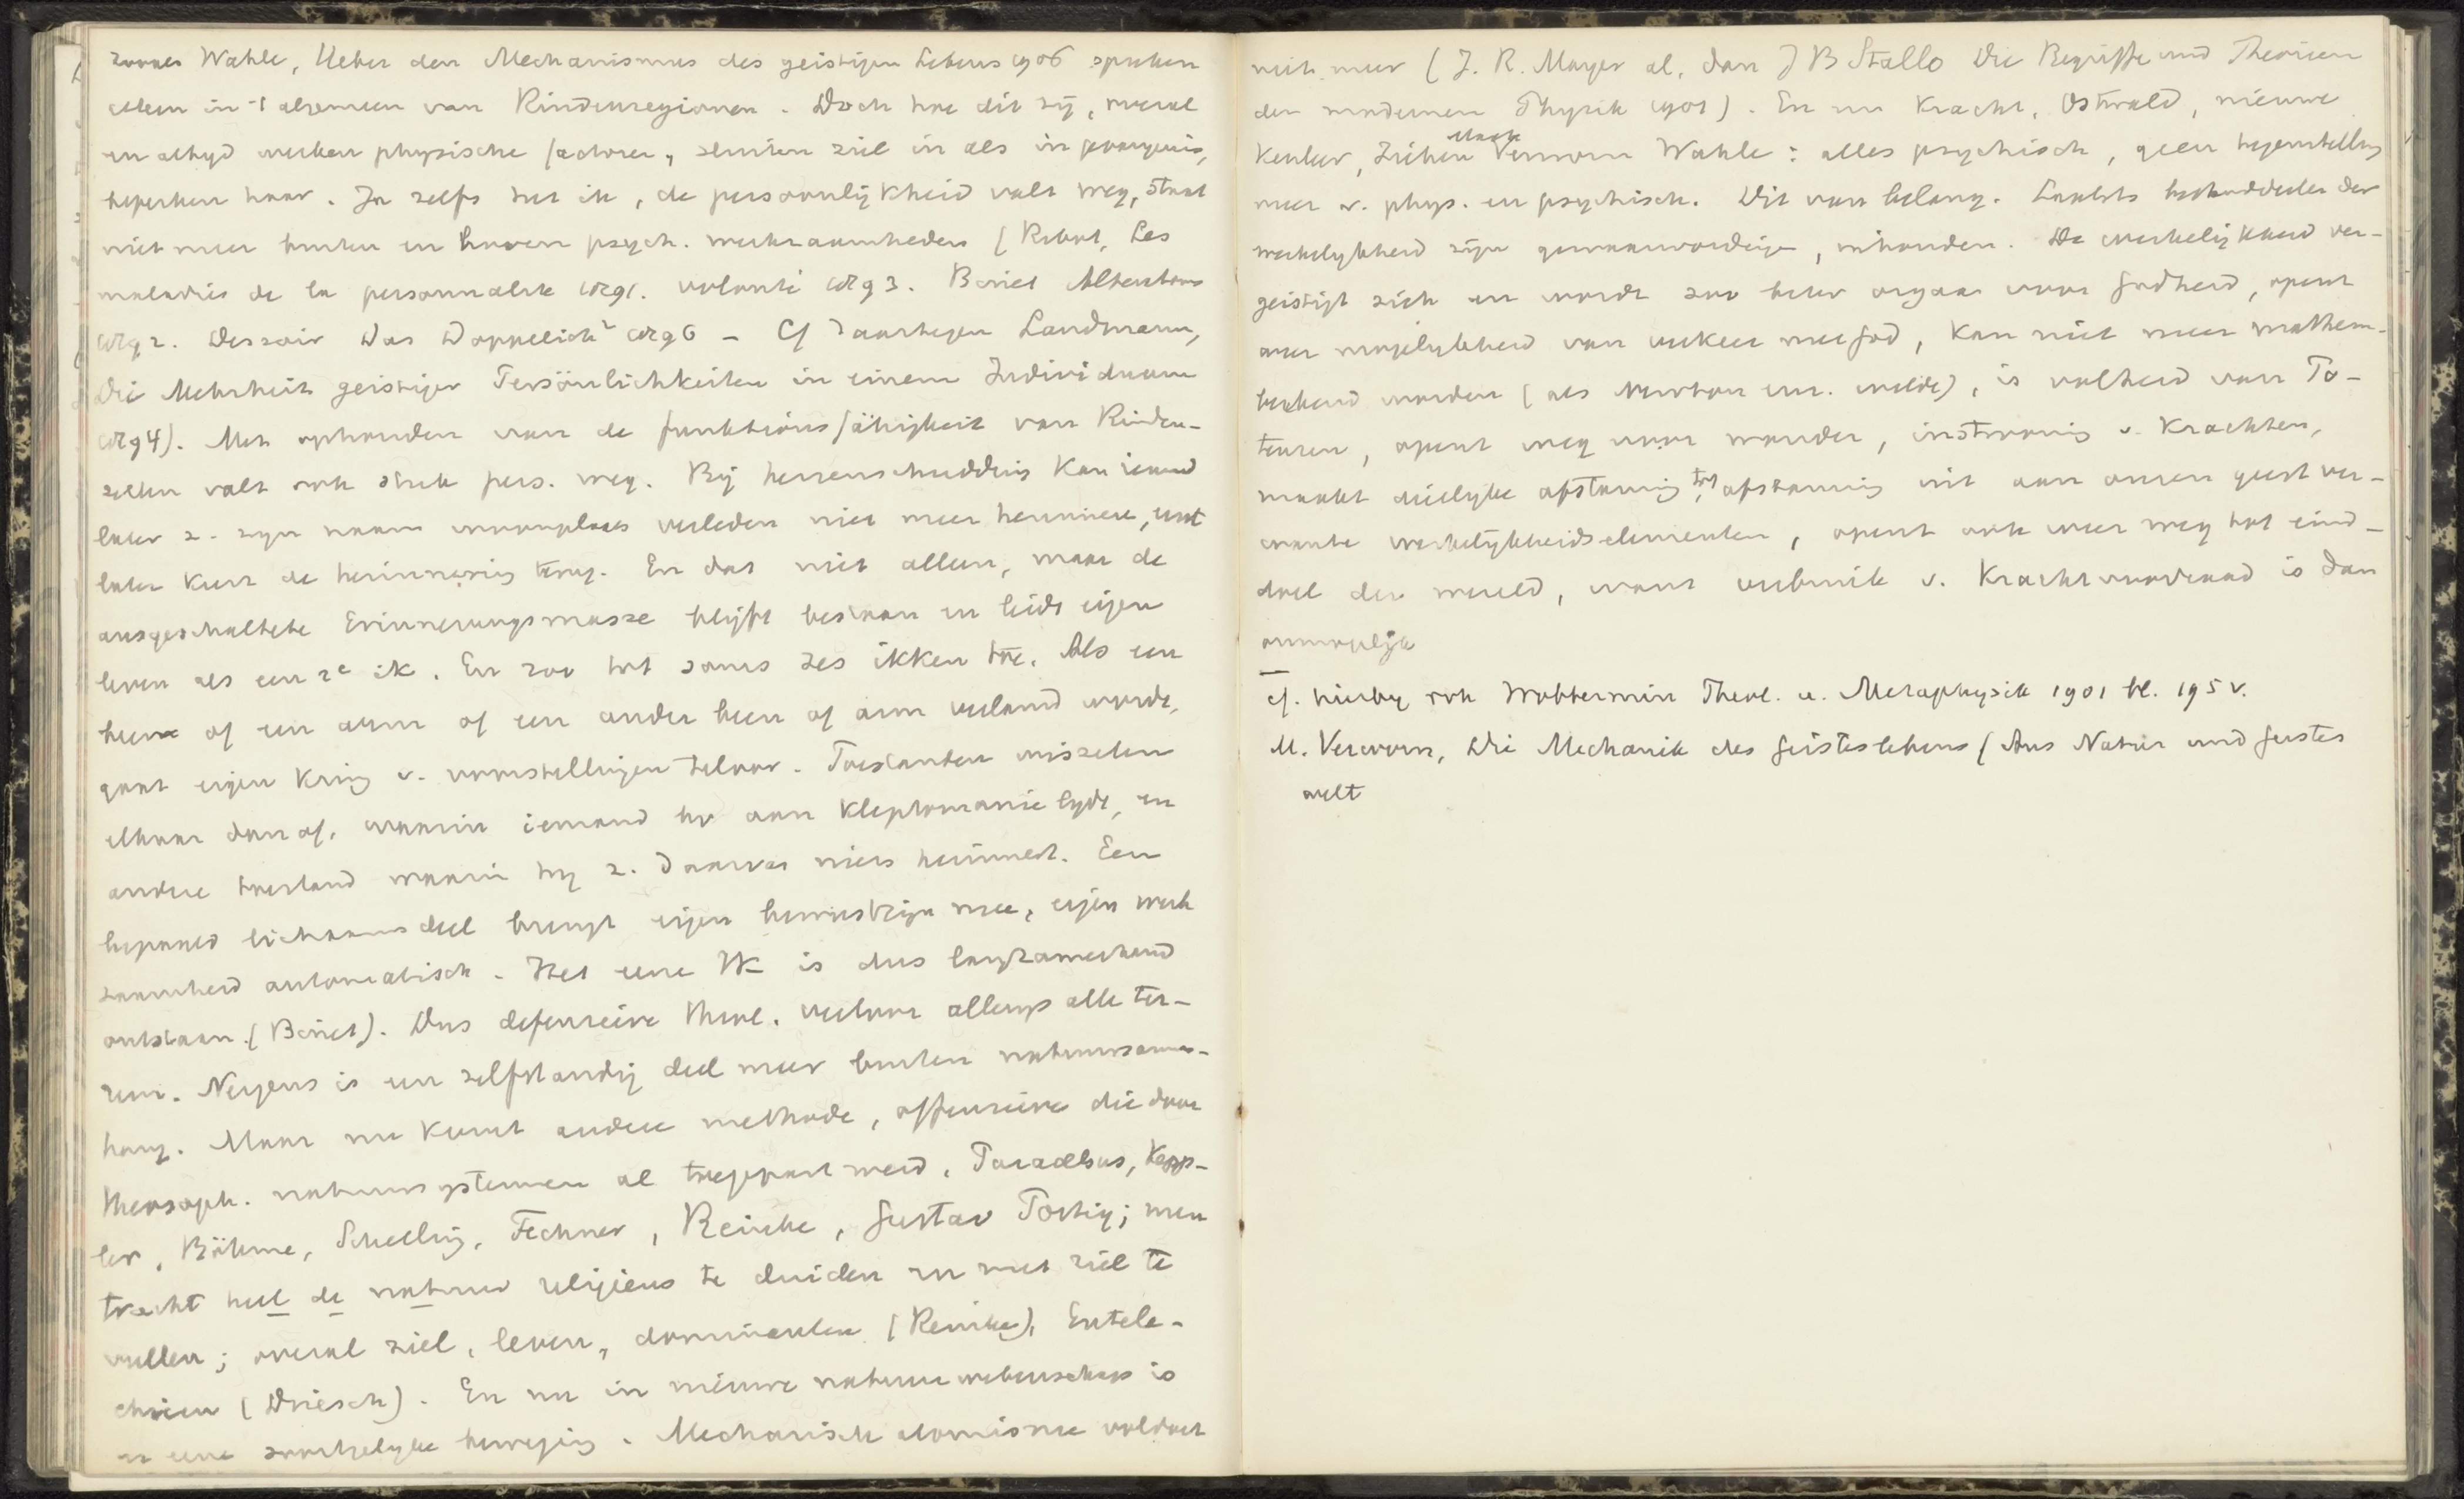 zooals Wahle, Ueber den Mechanismus des geistigen Lebens 1906 spreken
alleen in 't algemeen van Rindenregionen. Doch hoe dit zij, overal
en altyd werken physische factoren, sluiten ziel in als in gevangenis,
beperken haar. Ja zelfs het ik, de persoonlijkheid valt weg, staat
niet meer buiten en boven psych. werkzaamheden (Ribot, Les
maladies de la personnalité 1891. volonté 1893. Binet Alterations
1892. Dessoir Das Doppelich² 1896 - Cf daartegen Landmann,
Die Mehrheit geistiger Persönlichkeiten in einem Individuum
1894). Met ophouden van de funktionsfähigkeit van Rinden-
zellen valt ook stuk pers. weg. Bij hersenschudding kan iemand
later z. zijn naam woonplaats verleden niet meer herinneren, eerst
later keert de herinnering terug. En dat niet alleen, maar de
ausgeschaltete Erinnerungsmasse blijft bestaan en leidt eigen
leven als een 2e ik. En zoo tot soms zes ikken toe. Als een
been of een arm of een ander been of arm verlamd wordt,
gaat eigen kring v. voorstellingen teloor. Toestanden wisselen
elkaar dan af, waarin iemand bv aan kleptomanie lydt, en
andere toestand waarin hy z. daarvan niets herinnert. Een
bepaald lichaamsdeel brengt eigen bewustzijn mee, eigen werk
zaamheid automatisch. Het eene Ik is dus langzamerhand
ontstaan (Binet). Dus defensieve theol. verloor allengs alle ter-
rein. Nergens is een zelfstandig deel meer buiten natuursamen-
hang. Maar nu komt andere methode, offensieve die door
theosoph. natuursystemen al toegepast werd, Paracelsus, Kepp-
ler, Böhme, Schelling, Fechner, Reinke, Gustav Portig; men
tracht heel de natuur religieus te duiden en met ziel te
vullen; overal ziel, leven, dominanten (Reinke), Entele-
chieen (Driesch). En nu in nieuwe natuurwetenschap is
er eene zoortgelyke beweging. Mechanisch atomisme voldoet
niet meer (J. R. Mayer al, dan J B Stallo Die Begriffe und Theorieen
der modernen Physik 1901). En nu kracht, Ostwald, nieuwe
Mach
kenleer, Ziehen Verworn Wahle: alles psychisch, geen tegenstelling
meer v. phys. en psychisch. Dit van belang. Laatste bestanddeelen der
werkelykheid zijn gewaarwordingen, inhouden. De werkelijkheid ver-
geestigt zich en wordt zoo beter orgaan voor Godheid, opent
weer mogelykheid van verkeer met God, kan niet meer mathem.
berekend worden (als Newton enz. wilde), is volheid van Po-
tenzen, opent weg voor wonder, instrooming v. krachten,
maakt dierlyke afstamming tot afstamming uit aan onzen geest ver-
wante werkelijkheidselementen, opent ook weer weg tot eind-
doel der wereld, want verbruik v. krachtvoorraad is dan
onmogelijk
cf. hierby ook Wobbermin Theol. u. Metaphysik 1901 bl. 195 v.
M. Verworn, Die Mechanik des Geisteslebens (Aus Natur und Geistes
welt